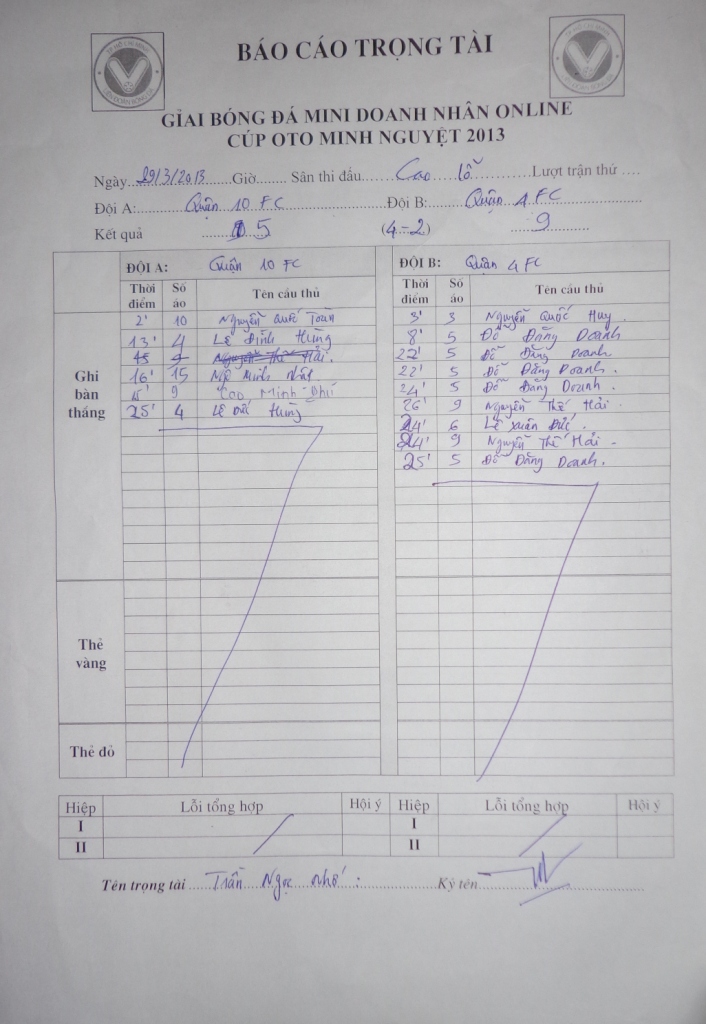 BÁO CÁO TRỌNG TÀI
GIẢI BÓNG ĐÁ MINI DOANH NHÂN ONLINE
CÚP OTO MINH NGUYỆT 2013
Ngày 29/3/2013 Giờ........ Sân thi đấu....Cao Lỗ....Lượt trận thứ ....
Đội A: Quận 10 FC Đội B: Quận 4 FC
Kết quả 5 (4-2) 9
ĐỘI A: Quận 10 FC ĐỘI B: Quận 4 FC
Thời điểm Số áo Tên cầu thủ Thời điểm Số áo Tên cầu thủ
Ghi bàn thắng
2' 10 Nguyễn Quốc Toàn 3' 3 Nguyễn Quốc Huy
13' 4 Lê Đình Hùng 8' 5 Đỗ Đăng Doanh
Nguyễn Thế Hải. 22' 5 Đỗ Đăng Doanh
16' 15 Ngô Minh 22' 5 Đỗ Đăng Doanh.
15' 9 Cao Minh Phú 24' 5 Đỗ Đăng Doanh.
25' 4 Lê Hùng 26' 9 Nguyễn Thế Hải.
24' 6 Lê Xuân Đức.
24' 9 Nguyễn Thế Hải
25' 5 Đỗ Đăng Doanh.
Thẻ vàng
Thẻ đỏ
Hiệp Lỗi tổng hợp Hội ý Hiệp Lỗi tổng hợp Hội ý
I I
II II
Tên trọng tài ....Trần Ngọc Nhớ.... Ký tên